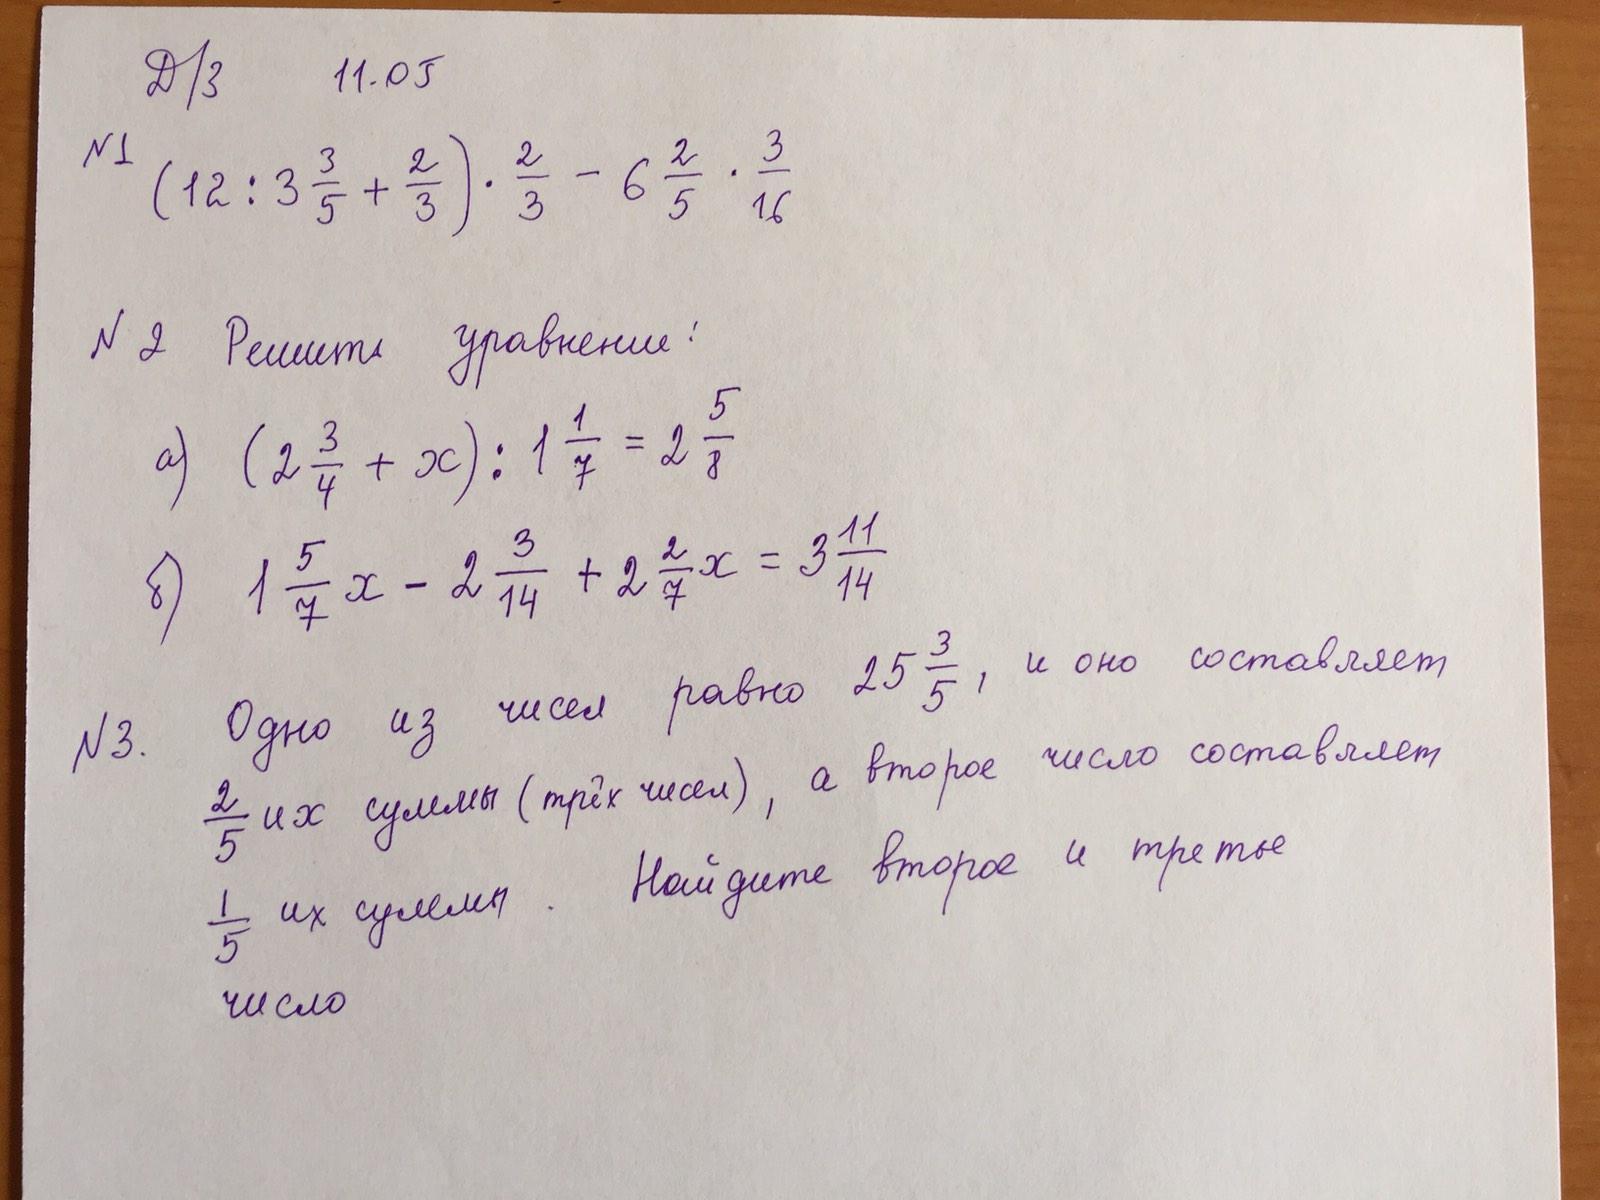 Д/з 11.05
№1 (12 : 3 3/5 + 2/3) · 2/3 - 6 2/5 · 3/16
№2 Решить уравнение:
а) (2 3/4 + x) : 1 1/7 = 2 5/8
б) 1 5/7 x - 2 3/14 + 2 2/7 x = 3 11/14
№3. Одно из чисел равно 25 3/5, и оно составляет
2/5 их суммы (трёх чисел), а второе число составляет
1/5 их суммы. Найдите второе и третье
число